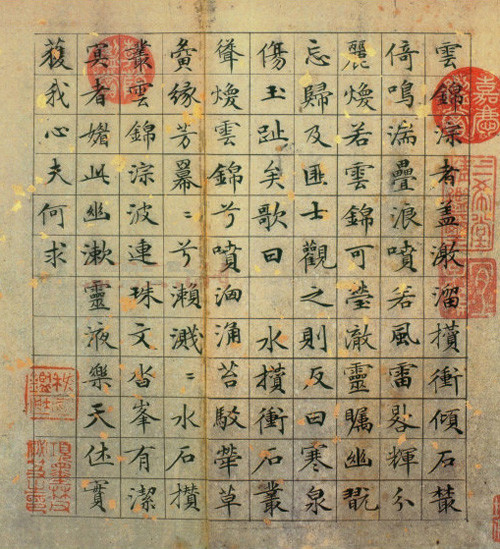 雲錦淙者盖激溜攢衝傾石藂
倚鳴湍疊浪噴若風雷詭輝分
麗煥若雲錦可瑩徹靈矚幽翫
忘歸及匪士觀之則反曰寒泉
傷玉趾矣歌曰 水攢衝石叢
聳煥雲錦兮噴洶涌苔駁犖草
夤緣芳羃〻兮瀨濺〻水石攢
叢雲錦淙波連珠文沓峯有潔
冥者媚此幽漱靈液樂天休實
獲我心夫何求
三希堂